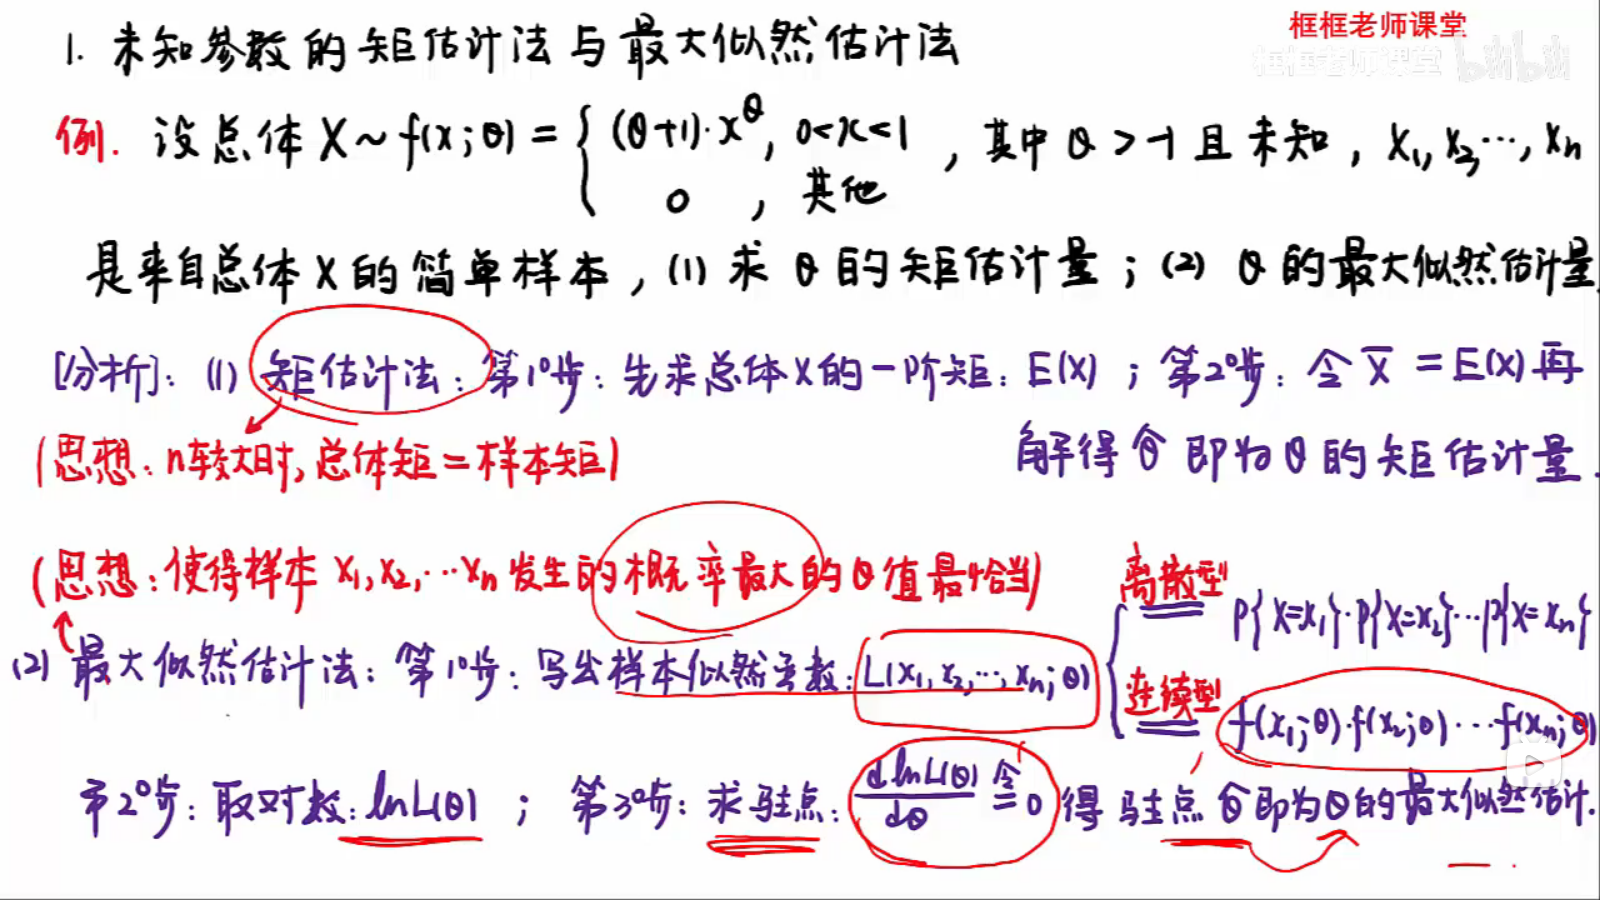 框框老师课堂
框框老师课堂 bilibili
1. 未知参数的矩估计法与最大似然估计法
例. 设总体 X ~ f(x;θ) = { (θ+1)·x^θ, 0<x<1 , 其中 θ > -1 且未知, X₁, X₂, ⋯, Xn
0 , 其他
是来自总体 X 的简单样本, (1) 求 θ 的矩估计量; (2) θ 的最大似然估计量.
[分析]: (1) 矩估计法: 第1°步: 先求总体X的一阶矩: E(X) ; 第2°步: 令 X̄ = E(X) 再
解得 θ̂ 即为 θ 的矩估计量.
(思想: n较大时, 总体矩=样本矩)
(思想: 使得样本 X₁, X₂, ⋯Xn 发生的概率最大的 θ 值最恰当)
(2) 最大似然估计法: 第1°步: 写出样本似然函数: L(x₁, x₂, ⋯, xn; θ)
离散型 P{X=x₁}·P{X=x₂}⋯P{X=xn}
连续型 f(x₁;θ)·f(x₂;θ)⋯f(xn;θ)
第2°步: 取对数: lnL(θ) ; 第3°步: 求驻点: dlnL(θ)/dθ 令= 0 得驻点 θ̂ 即为θ的最大似然估计.